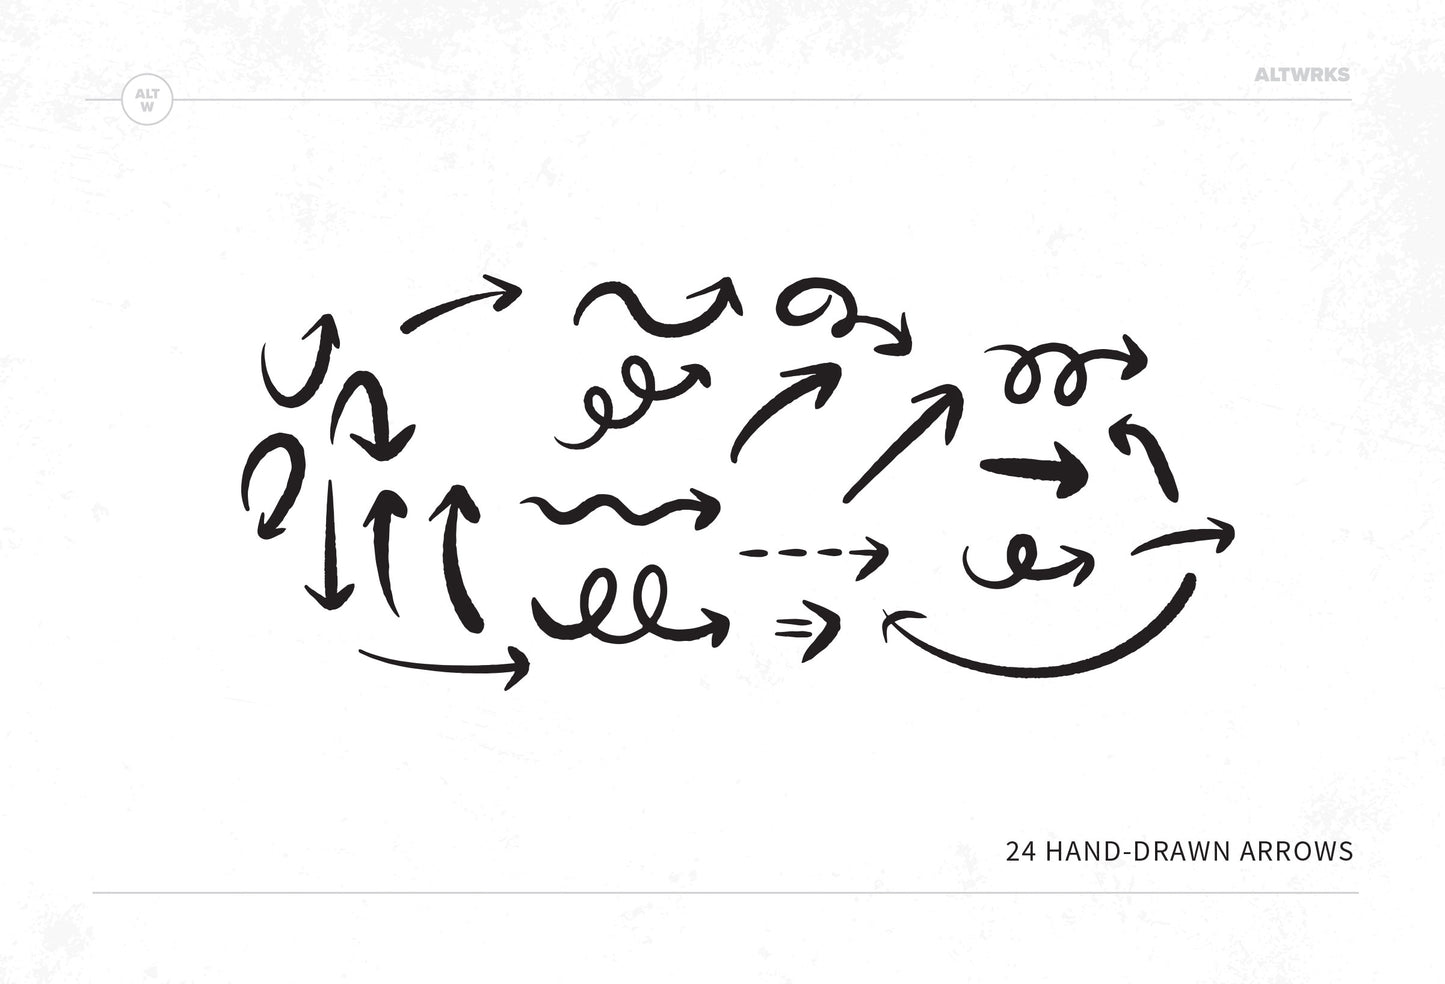 ALTWRKS
ALT
W
24 HAND-DRAWN ARROWS